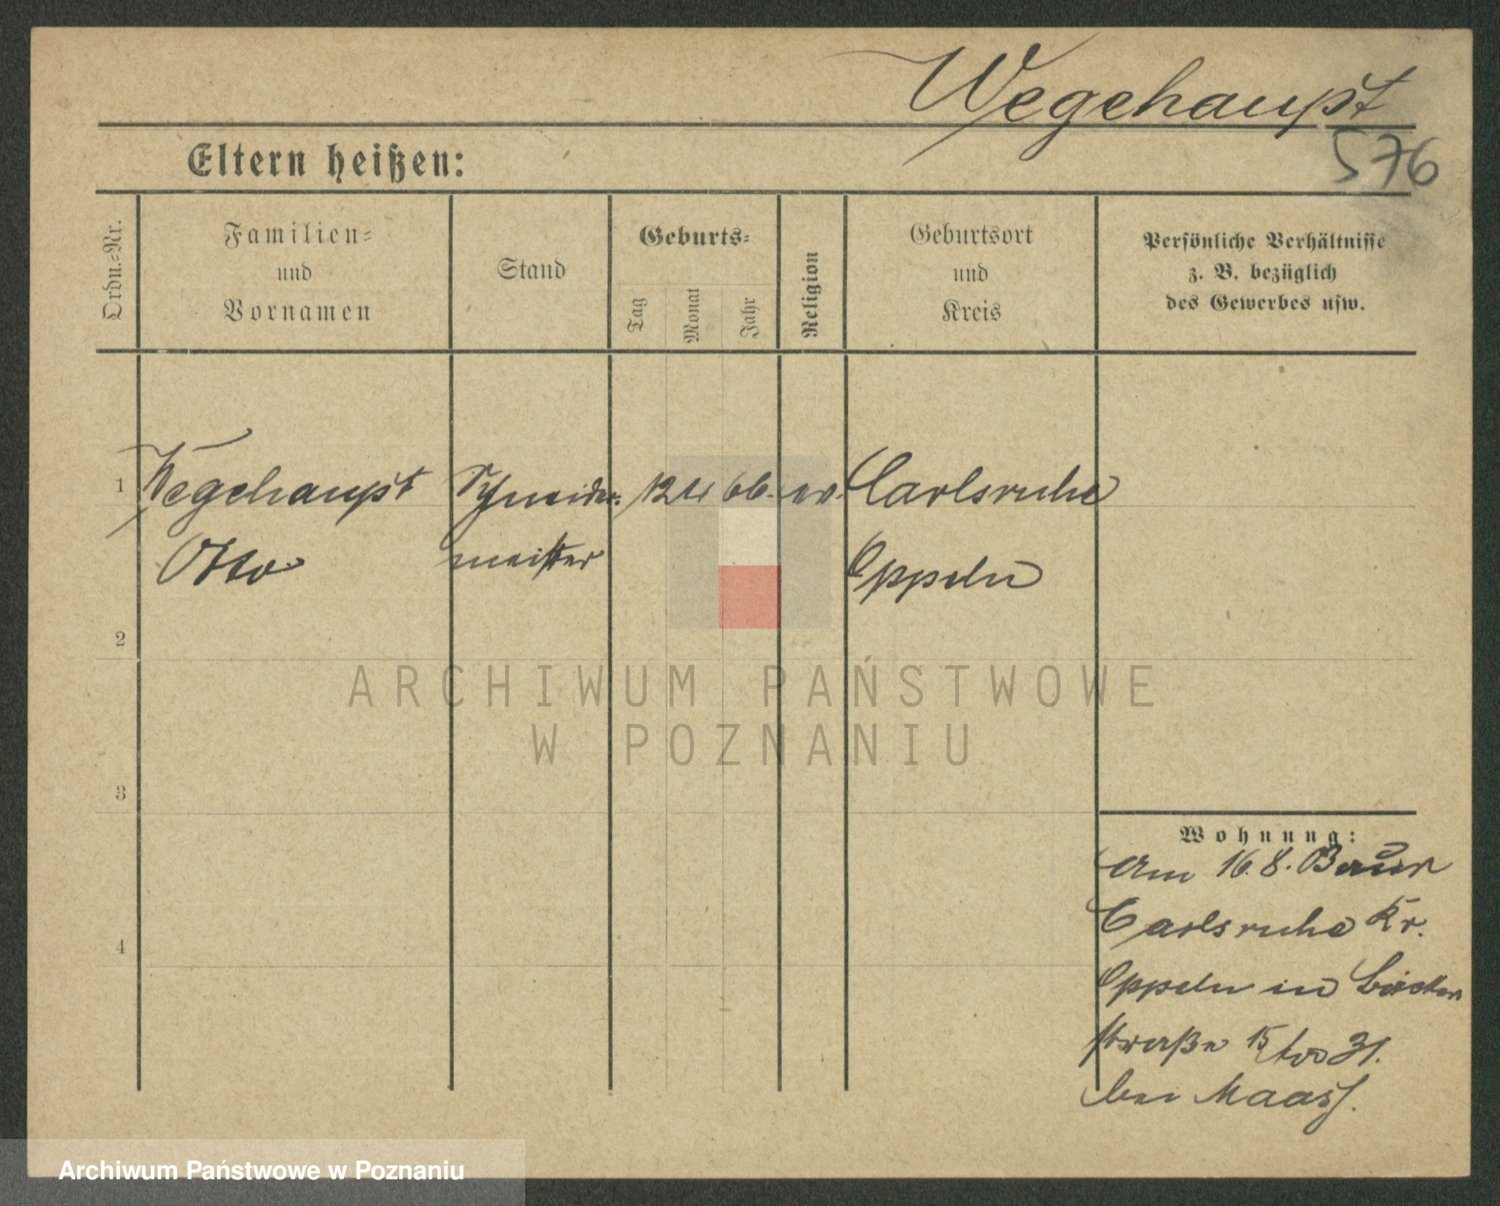 Wegehaupt
576
Eltern heißen:
Ordn.=Nr.
Familien=
und
Vornamen
Stand
Geburts=
Tag
Monat
Jahr
Religion
Geburtsort
und
Kreis
Persönliche Verhältnisse
z. B. bezüglich
des Gewerbes usw.
1 Wegehaupt Schneider- 12 4 66. ev. Carlsruhe
Otto meister Oppeln
2
ARCHIWUM PAŃSTWOWE
W POZNANIU
3
Wohnung:
Am 16.8.
Carlsruhe Kr.
4
Oppeln in Bäcker
straße 15 31.
bei Maass.
Archiwum Państwowe w Poznaniu